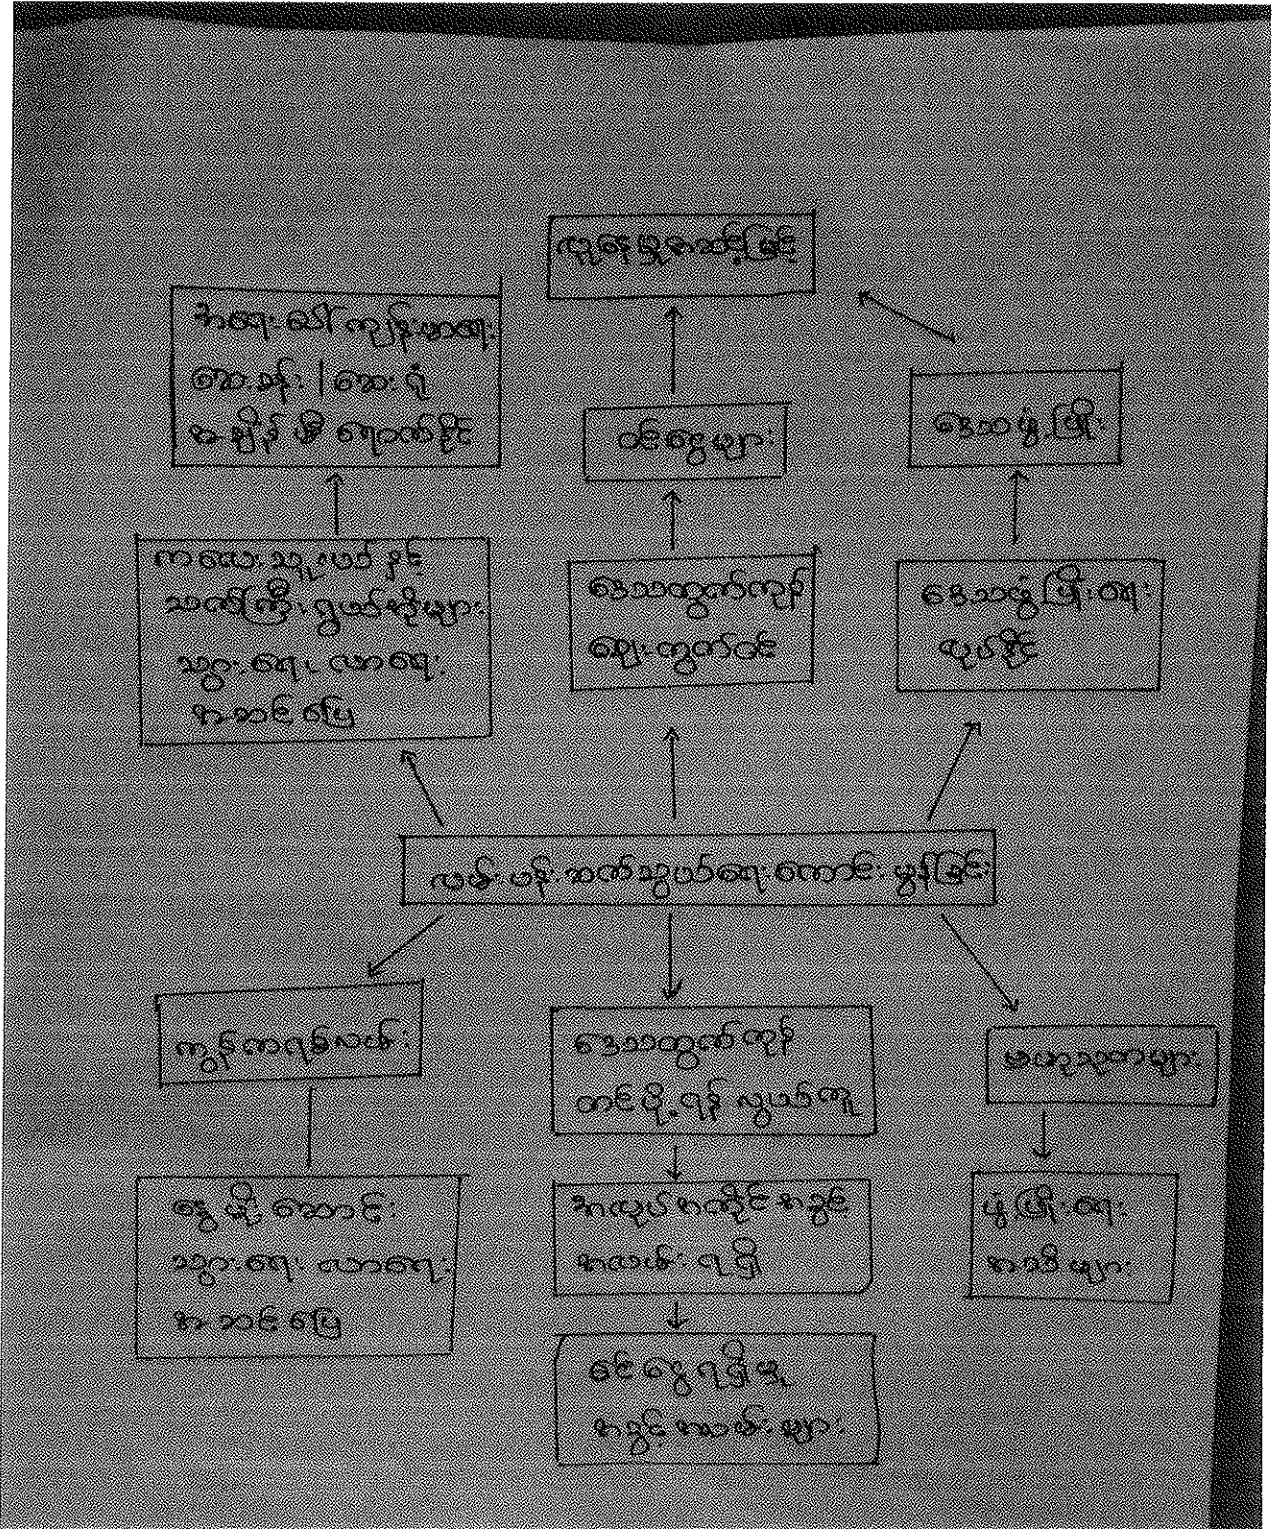 လူနေမှုအဆင့်မြင့်
အရေးပေါ် ကျန်းမာရေး
ဆေးခန်း / ဆေးရုံ
အချိန်မီ ရောက်နိုင်
ဝင်ငွေများ
ဒေသဖွံ့ဖြိုး
ကလေးသူငယ်နှင့်
သက်ကြီးရွယ်အိုများ
သွားရေး လာရေး
အဆင်ပြေ
ဒေသထွက်ကုန်
ဈေးကွက်ဝင်
ဒေသဖွံ့ဖြိုးရေး
လုပ်နိုင်
လမ်းပန်းဆက်သွယ်ရေးကောင်းမွန်ခြင်း
ကွန်ကရစ်လမ်း
ဒေသထွက်ကုန်
တင်ပို့ရန် လွယ်ကူ
ဗဟုသုတများ
နွေ မိုး ဆောင်း
သွားရေး လာရေး
အဆင်ပြေ
အလုပ်အကိုင်အခွင့်
အလမ်းရရှိ
ဖွံ့ဖြိုးရေး
အသိများ
ဝင်ငွေရရှိမှု
အခွင့်အလမ်းများ